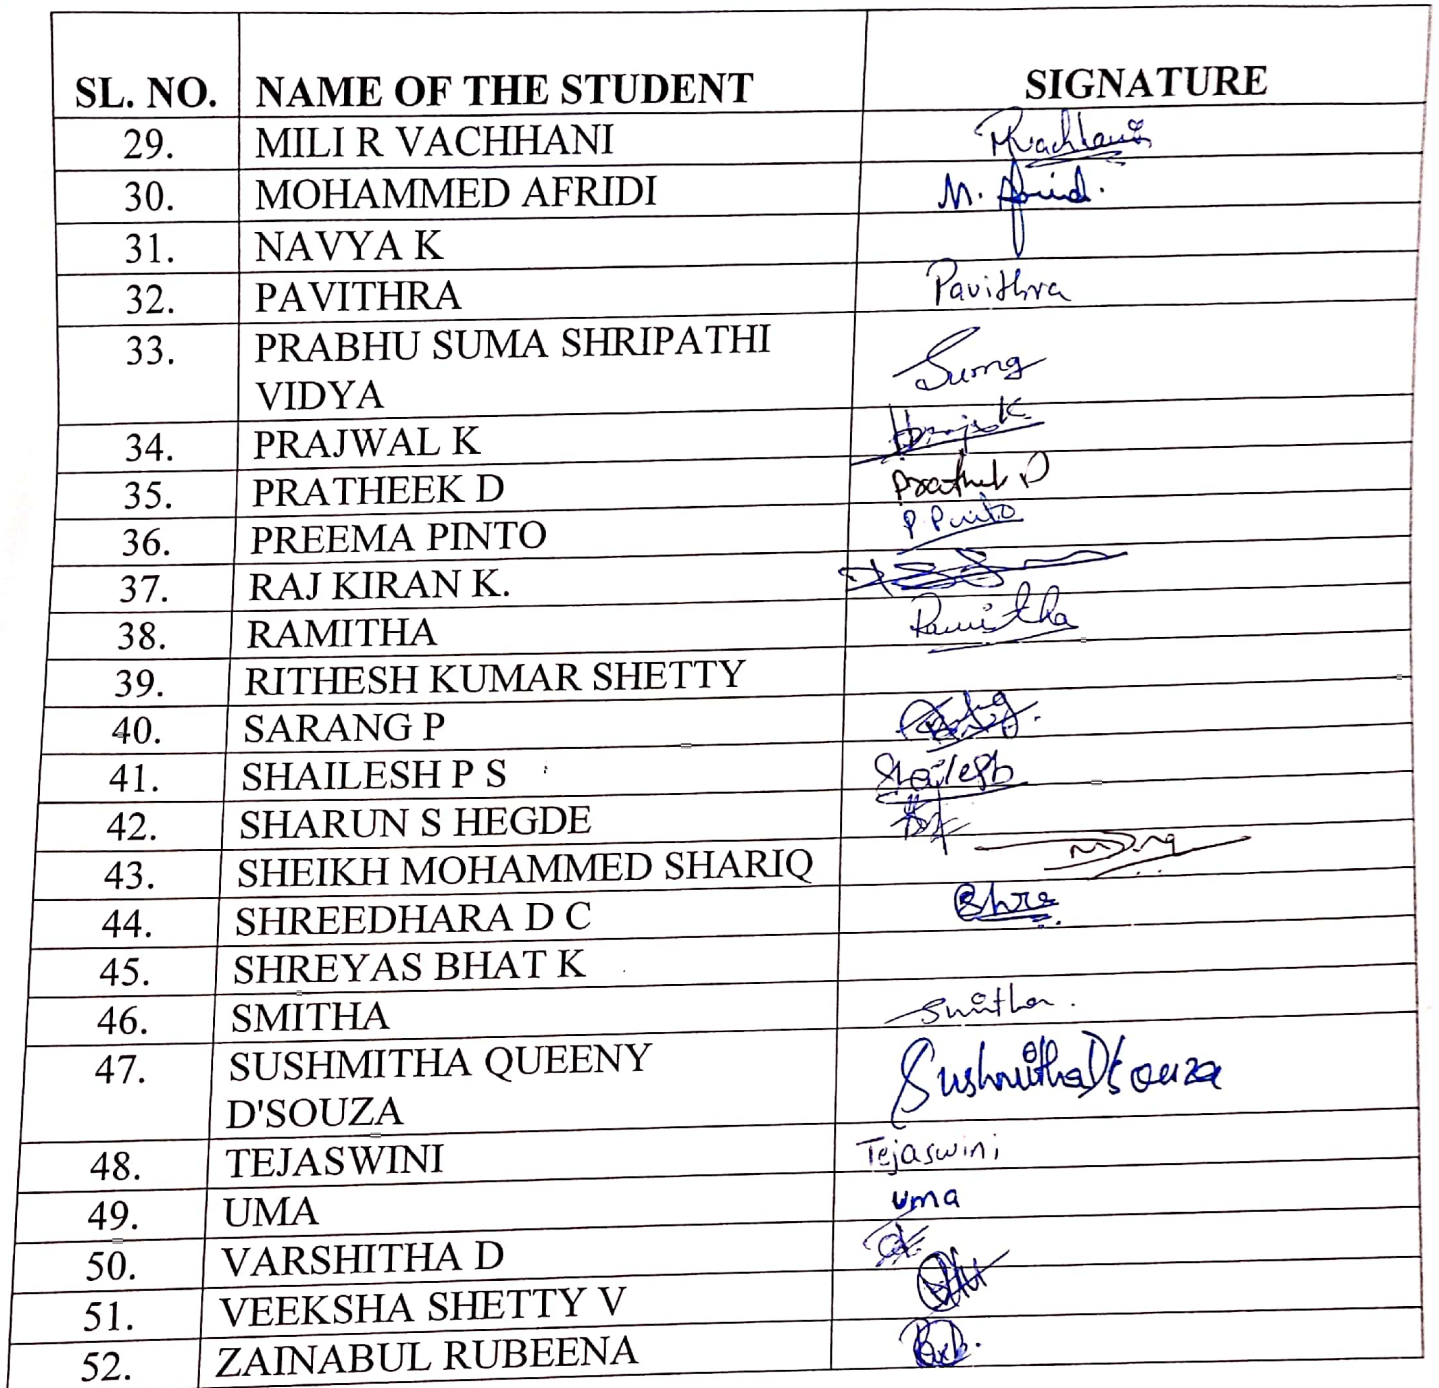 SL. NO. NAME OF THE STUDENT SIGNATURE
29. MILI R VACHHANI
30. MOHAMMED AFRIDI M. Afrid.
31. NAVYA K
32. PAVITHRA Pavithra
33. PRABHU SUMA SHRIPATHI
VIDYA Suma
34. PRAJWAL K
35. PRATHEEK D
36. PREEMA PINTO P Pinto
37. RAJ KIRAN K.
38. RAMITHA Ramitha
39. RITHESH KUMAR SHETTY
40. SARANG P
41. SHAILESH P S Shailesh
42. SHARUN S HEGDE
43. SHEIKH MOHAMMED SHARIQ
44. SHREEDHARA D C Shre
45. SHREYAS BHAT K
46. SMITHA Smitha.
47. SUSHMITHA QUEENY Sushmitha D'Souza
D'SOUZA
48. TEJASWINI Tejaswini
49. UMA uma
50. VARSHITHA D
51. VEEKSHA SHETTY V
52. ZAINABUL RUBEENA